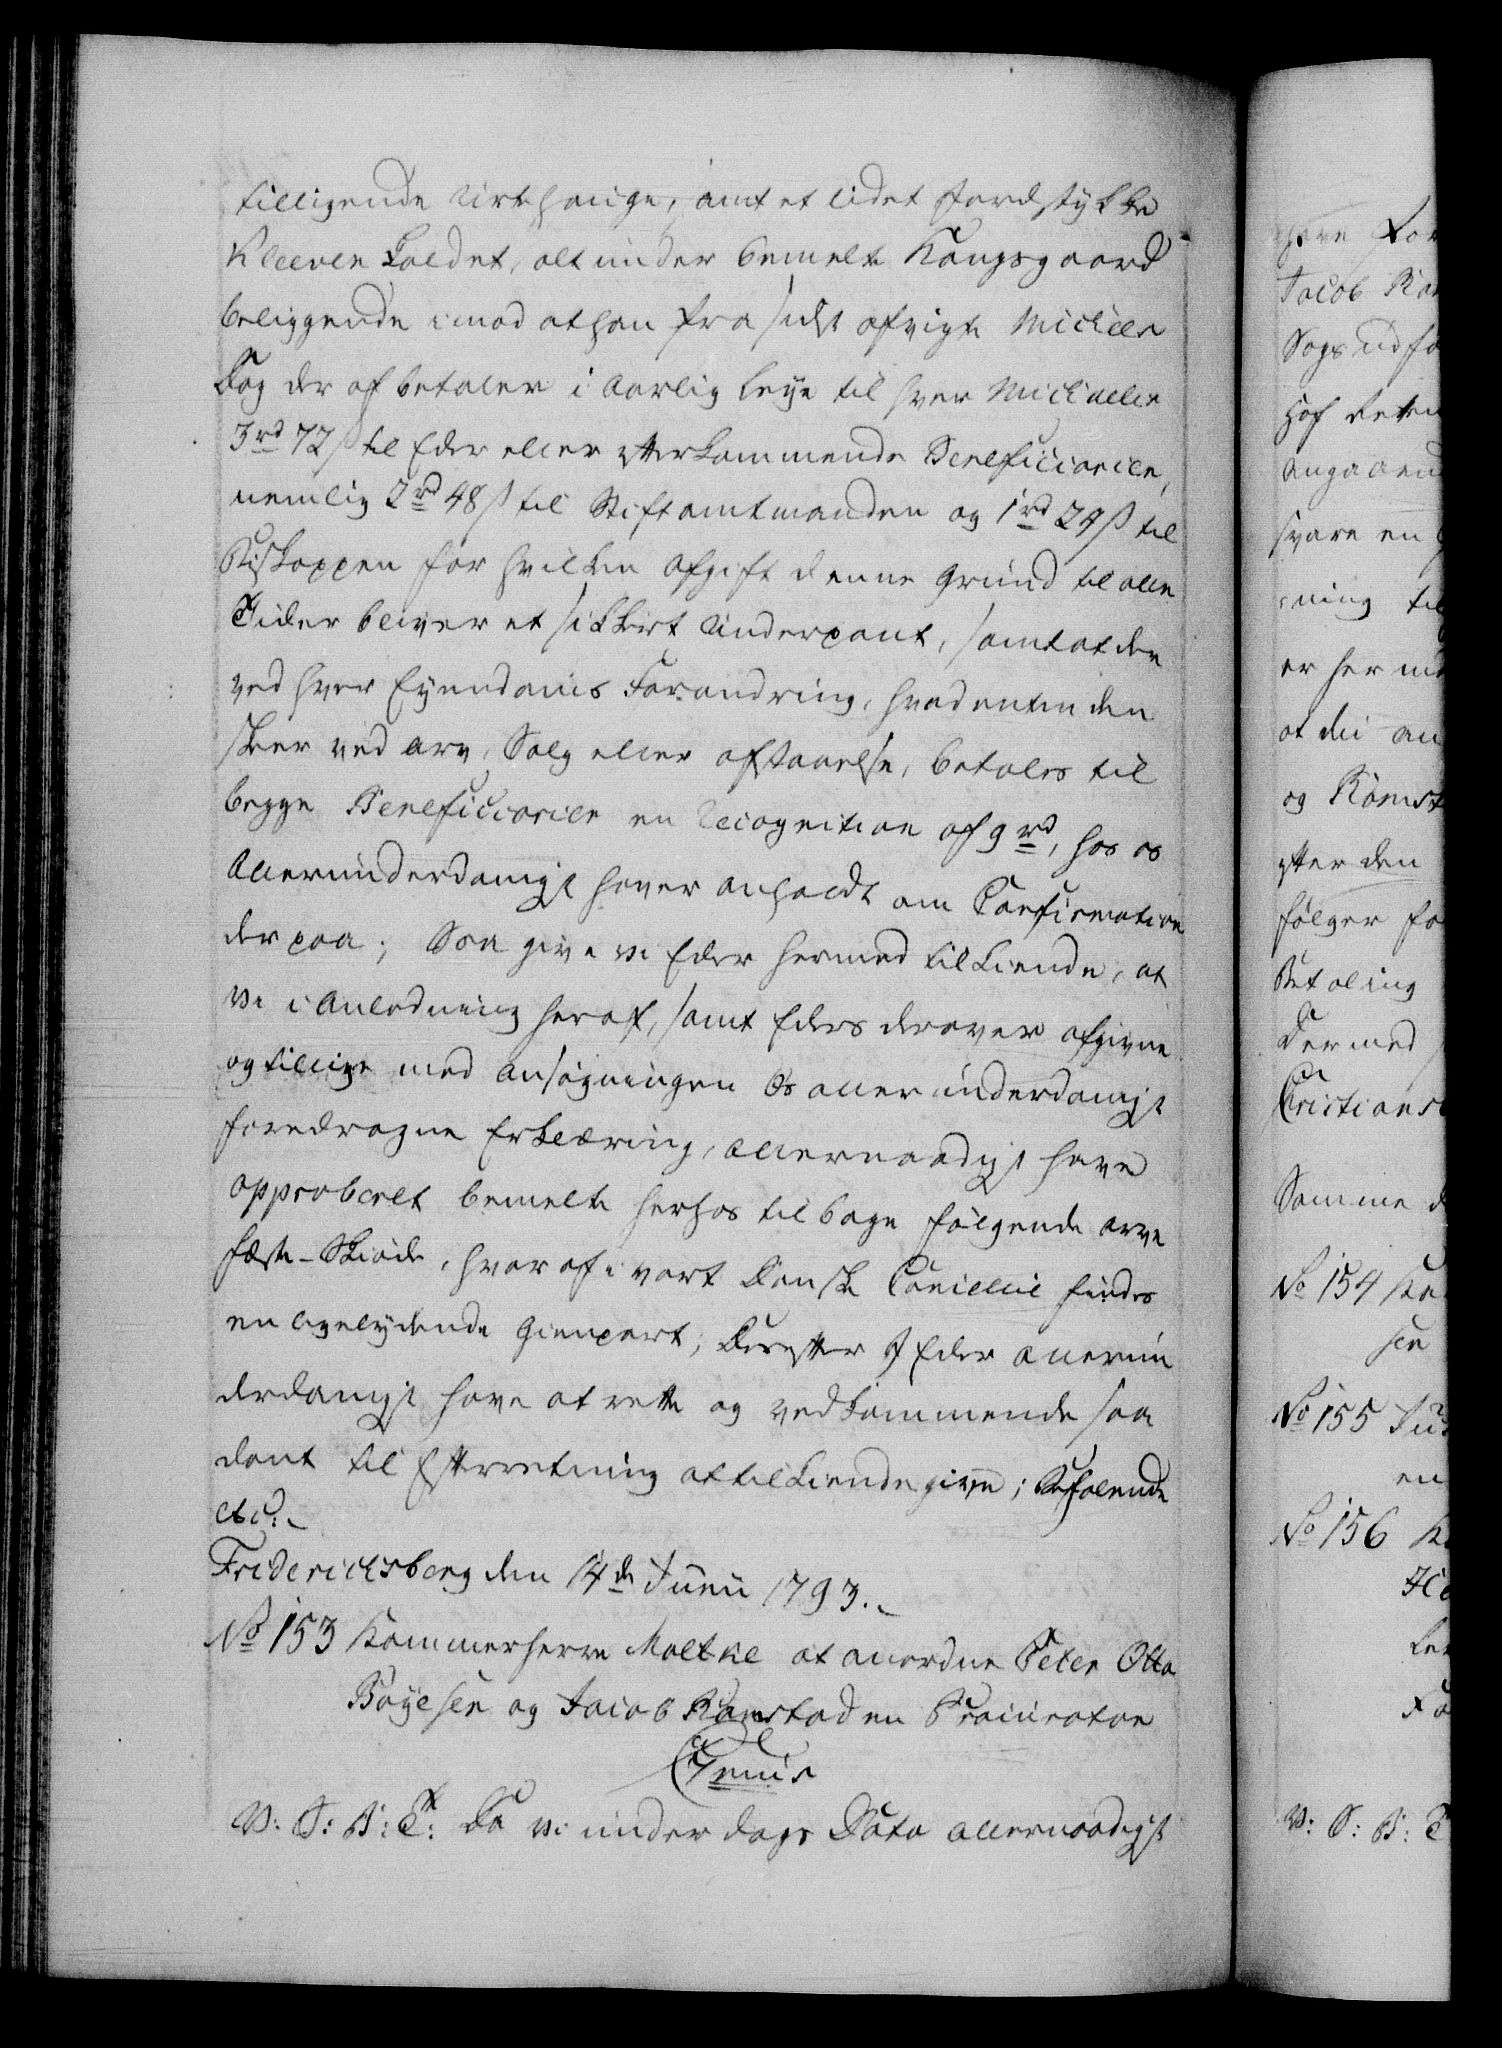 tilligende Urtehauge, samt et lidet Jordstykke
Kleeven kaldet, alt under bemelte Kongsgaard
beliggende imod at han fra sidst afvigte Michels
Dag der af betaler i Aarlig Leye til hver Michaelis
3 rd 72 s til Eder eller efterkommende Beneficiarier,
nemlig 2 rd 48 s til Stiftamtmanden og 1 rd 24 s til
Biskoppen for hvilken Afgift denne Grund til alle
Tider bliver et sikkert Underpant, samt at der
ved hver Eyendoms Forandring, hvad enten den
skeer ved Arv, Salg eller afstaaelse, betales til
begge Beneficiarier en Recognition af 9 rd, hos os
Allerunderdanigst haver anholdt om Confirmation
derpaa; Saa give vi Eder hermed tilkiende, at
vi i Anledning heraf, samt Eders derover afgivne
og tillige med ansøgningen Os allerunderdanigst
foredragne Erklæring, allernaadigst have
approberet bemelte herhos tilbage følgende arve
fæste-Skiøde, hvoraf i vort Danske Cancellie findes
en ligelydende Gienpart; Derefter I Eder allerun
derdanigst have at rette og vedkommende saa
dant til Efterretning at tilkiendegive; Befalende
etc:
Friderichsberg den 14de Junii 1793.
No 153 Kammerherre Moltke at anordne Peter Otto
Boyesen og Jacob Ramstad en Procurator
Gratis
V: G: B: T: Da vi under dags Dato allernaadigst
have For
Jacob Ram
Sags udfø
Hof Retten
Angaaend
svare en
ning til
er her me
at de an
og Ramst
efter den
følger fo
Betaling
Dermed
Christians
Samme d
No 154
sen
No 155
en
No 156
V: G: B: T